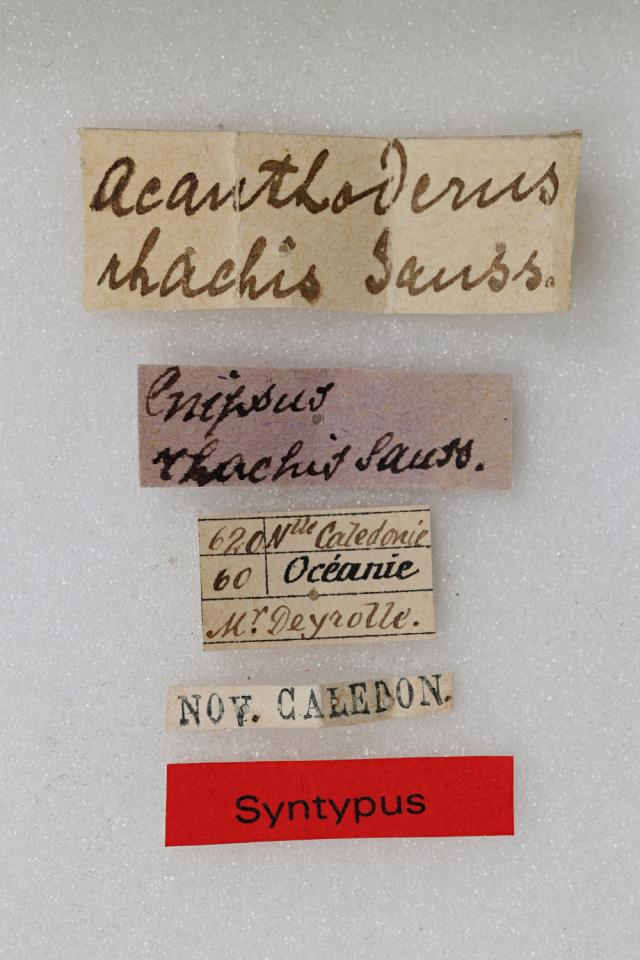 Acanthoderus
rhachis Sauss.
Cnipsus
rhachis Sauss.
620 Nlle Caledonie
60 Océanie
Mr. Deyrolle.
NOV. CALEDON.
Syntypus